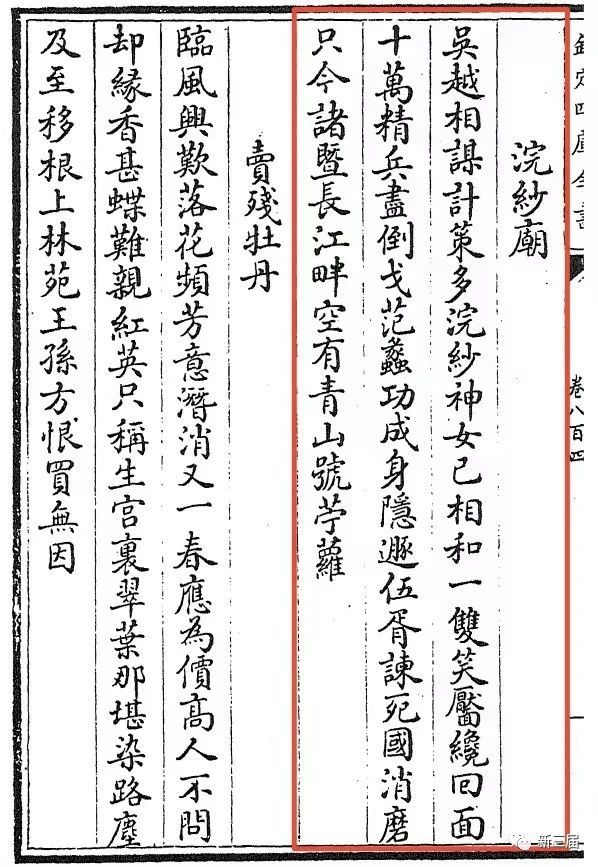 欽定四庫全書
卷八百四
浣紗廟
吳越相謀計策多浣紗神女已相和一雙笑靨纔回面
十萬精兵盡倒戈范蠡功成身隱遯伍胥諫死國消磨
只今諸暨長江畔空有青山號苧蘿
賣殘牡丹
臨風興歎落花頻芳意潛消又一春應為價高人不問
却緣香甚蝶難親紅英只稱生宮裏翠葉那堪染路塵
及至移根上林苑王孫方恨買無因
新三届